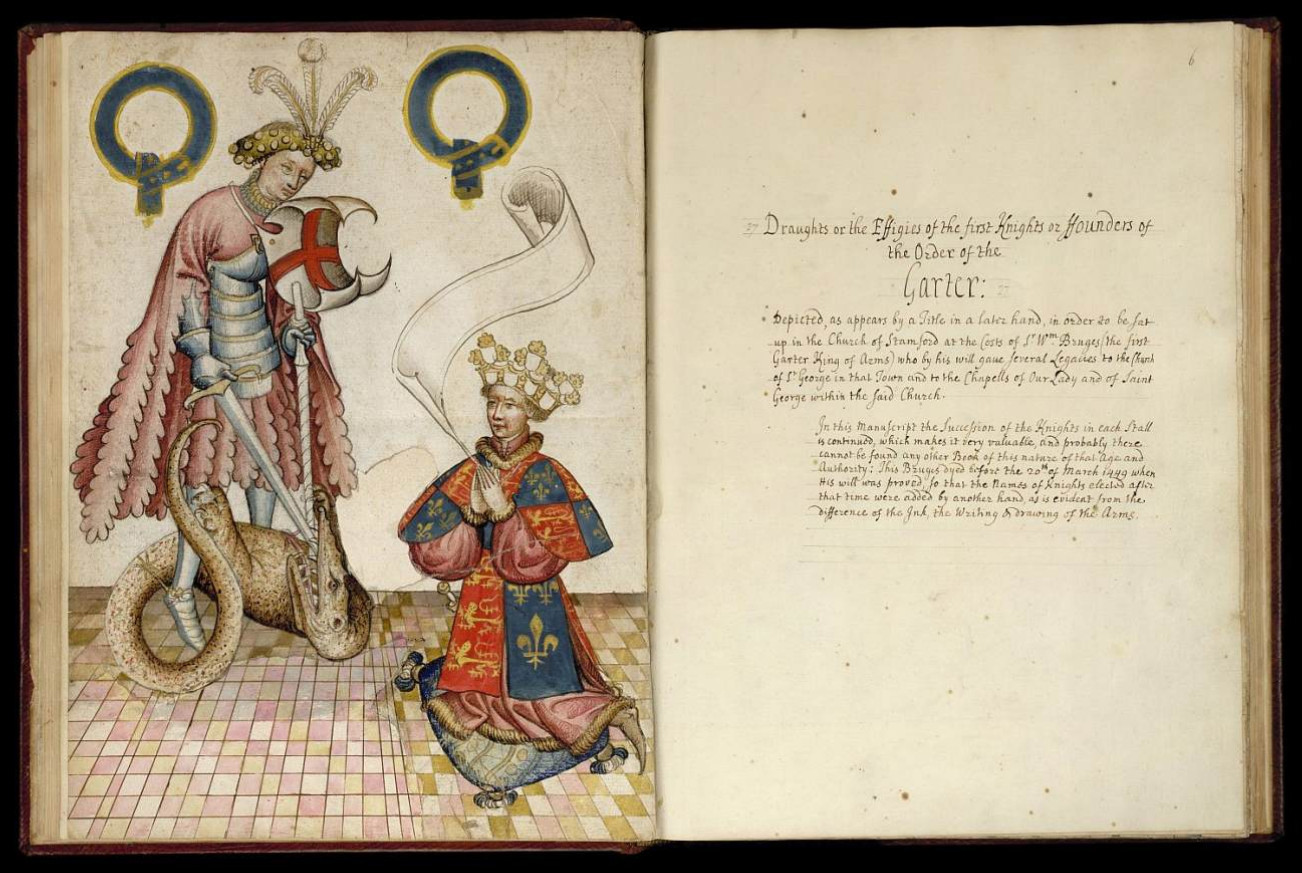 6
27 Draughts or the Effigies of the first Knights or ffounders of
the Order of the
Garter:
Depicted, as appears by a Title in a later hand, in order to be sat
up in the Church of Stamford at the Costs of Sr. Wm. Bruges (the first
Garter King of Arms) who by his will gave several Legacies to the Church
of St. George in that Town and to the Chapells of Our Lady and of Saint
George within the said Church.
In this Manuscript the Succession of the Knights in each Stall
is continued, which makes it very valuable, and probably there
cannot be found any other Book of this nature of that Age and
Authority: This Bruges dyed before the 20th of March 1449 when
His will was proved, so that the Names of Knights elected after
that time were added by another hand, as is evident from the
difference of the Ink, the Writing & drawing of the Arms.